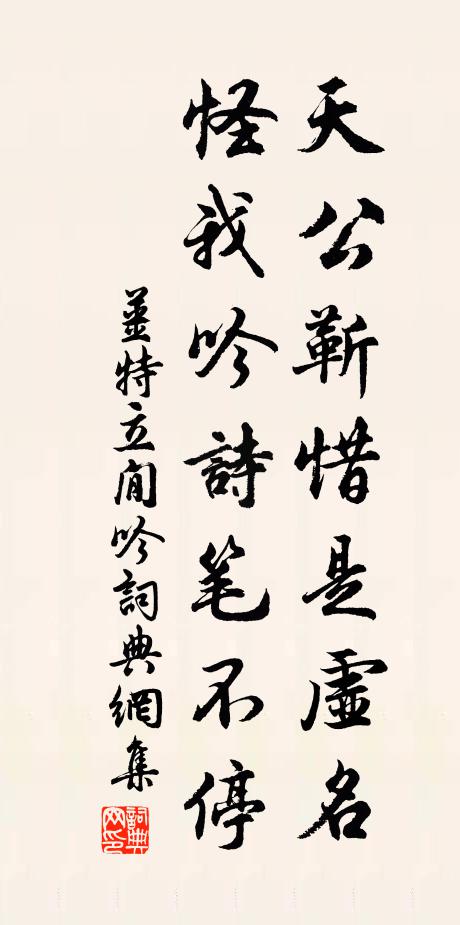 天公靳惜是虛名
怪我吟詩笔不停
姜特立閒吟詞典網集
詞典網印